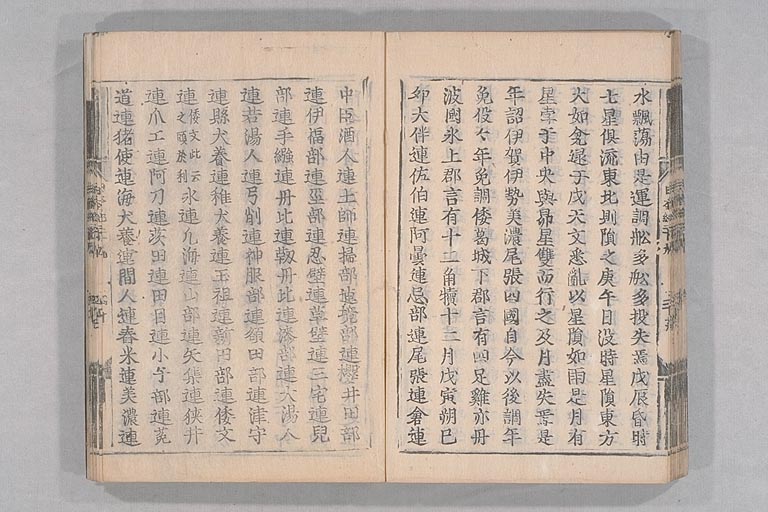 水飄蕩由是運調舩多舩多投失焉戊辰昏時
七星俱流東北則隕之庚午日没時星隕東方
大如瓮逮于戌天文悉亂以星隕如雨是月有
星孛于中央與昴星雙而行之及月盡失焉是
年詔伊賀伊勢美濃尾張四國自今以後調年
免役々年免調倭葛城下郡言有四足雞亦丹
波國氷上郡言有十二角犢十二月戊寅朔己
卯大伴連佐伯連阿曇連忌部連尾張連倉連
中臣酒人連土師連掃部連境部連櫻井田部
連伊福部連巫部連忍壁連草壁連三宅連兒
部連手繦連丹比連靫丹比連漆部連大湯人
連若湯人連弓削連神服部連額田部連津守
連縣犬養連稚犬養連玉祖連新田部連倭文
連倭文此云之頭於利氷連凡海連山部連矢集連狹井
連爪工連阿刀連茨田連田目連小子部連菟
道連猪使連海犬養連間人連舂米連美濃連